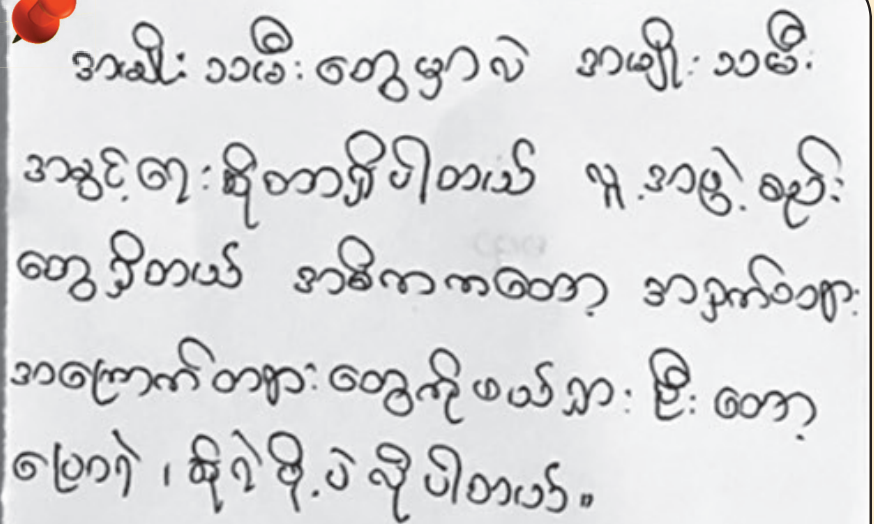 အမျိုးသမီးတွေမှာလဲ အမျိုးသမီး
အခွင့်ရေးဆိုတာရှိပါတယ် လူ့အဖွဲ့စည်း
တွေရှိတယ် အဓိကကတော့ အရှက်တရား
အကြောက်တရားတွေကိုဖယ်ရှားပြီးတော့
ပြောရဲ၊ ဆိုရဲဖို့ပဲလိုပါတယ်။